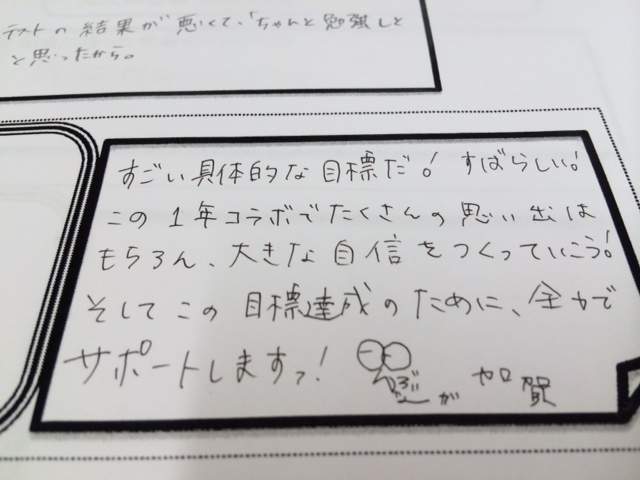 テストの結果が悪くて、「ちゃんと勉強しと
と思ったから。
すごい具体的な目標だ！すばらしい！
この1年コラボでたくさんの思い出は
もちろん、大きな自信をつくっていこう！
そしてこの目標達成のために、全力で
サポートしますっ！
が 加賀